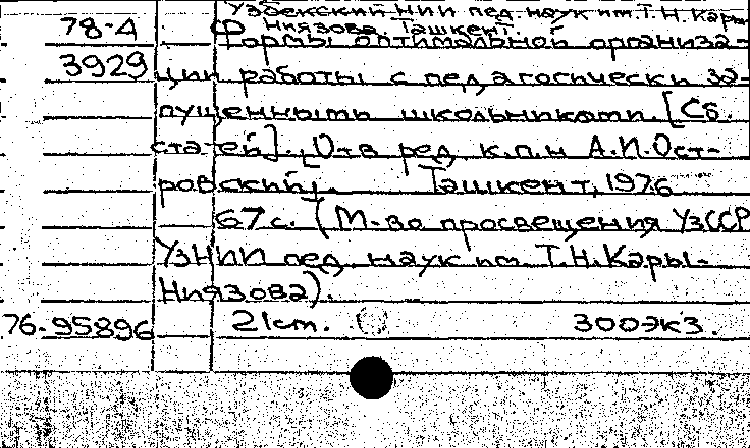 Узбекский НИИ пед. наук им. Т.Н. Кары-
Ниязова. Ташкент.
78-4 Формы оптимальной организа-
3929 ции работы с педагогически за-
пущенными школьниками. [Сб.
статей]. [Отв. ред. к.п.н А.И.Ост-
ровский]. Ташкент, 1976
67 с. (М-во просвещения УзССР
УзНИИ пед. наук им. Т.Н.Кары-
Ниязова).
76-95896 21 см. 300экз.